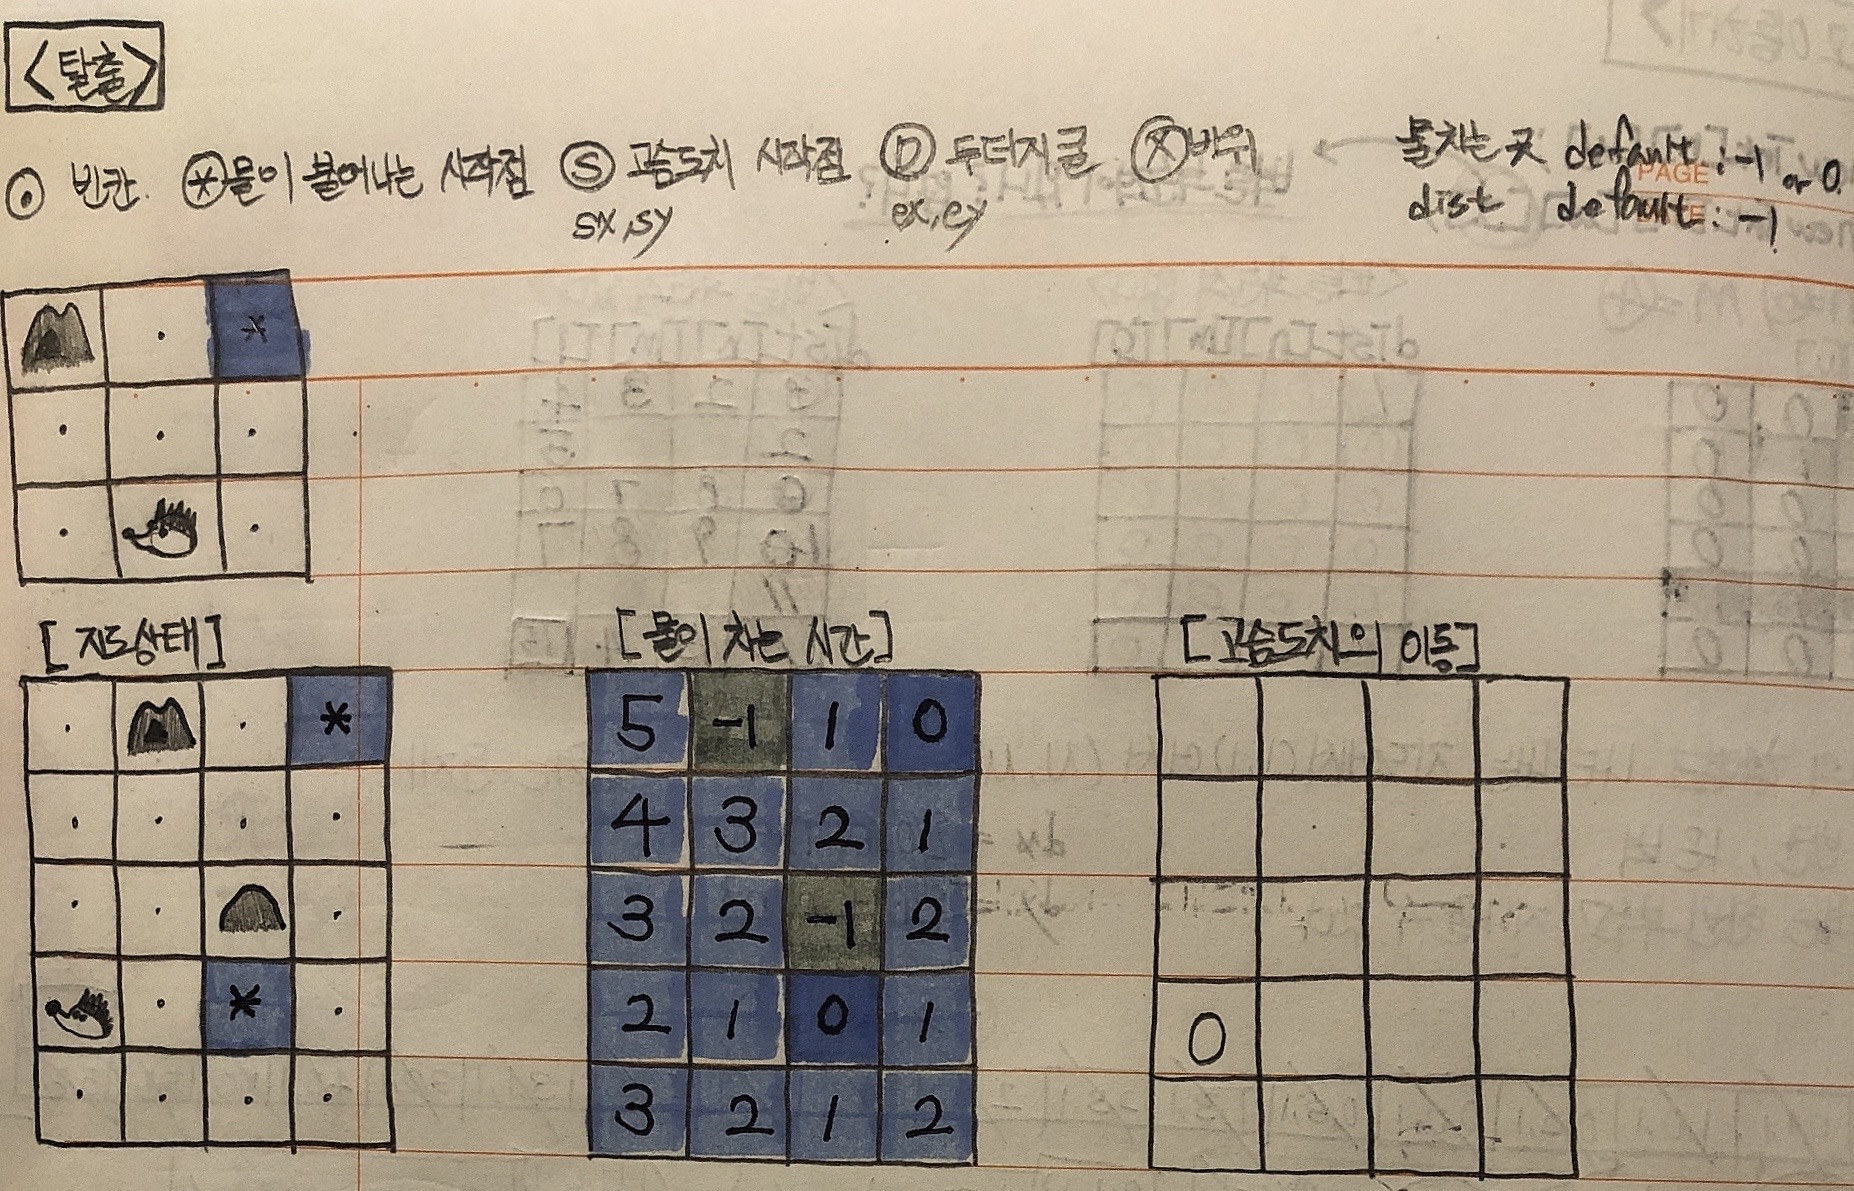 <탈출>
⊙ 빈칸. ⊛물이 불어나는 시작점 Ⓢ 고슴도치 시작점 Ⓓ 두더지굴 Ⓧ바위
sx,sy ex,ey
물차는 곳 default : -1 or 0.
dist default : -1
PAGE
*
[지도상태]
*
*
[물이 차는 시간]
5 -1 1 0
4 3 2 1
3 2 -1 2
2 1 0 1
3 2 1 2
[고슴도치의 이동]
0